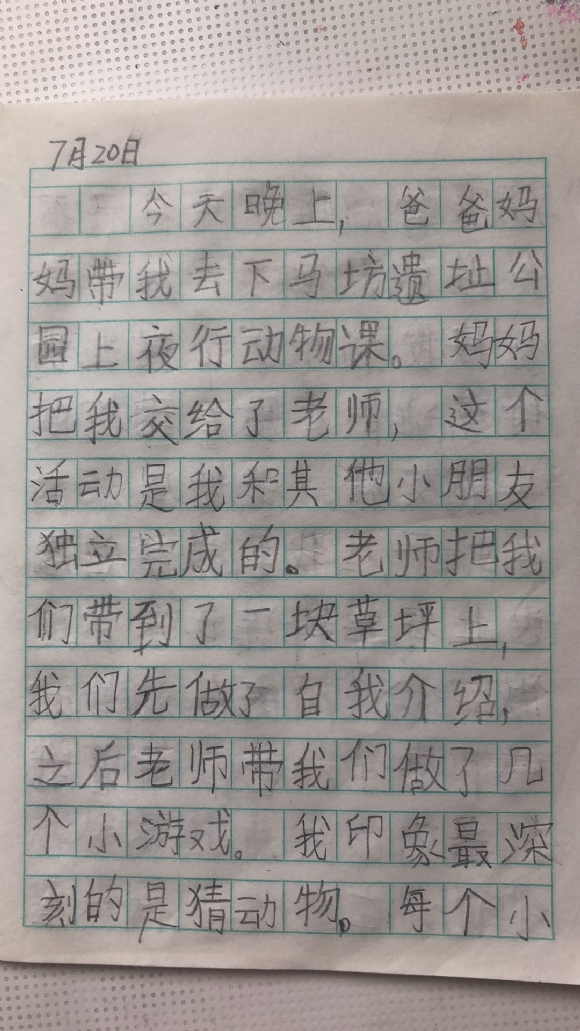 7月20日
今天晚上，爸爸妈
妈带我去下马坊遗址公
园上夜行动物课。妈妈
把我交给了老师，这个
活动是我和其他小朋友
独立完成的。老师把我
们带到了一块草坪上，
我们先做了自我介绍，
之后老师带我们做了几
个小游戏。我印象最深
刻的是猜动物。每个小